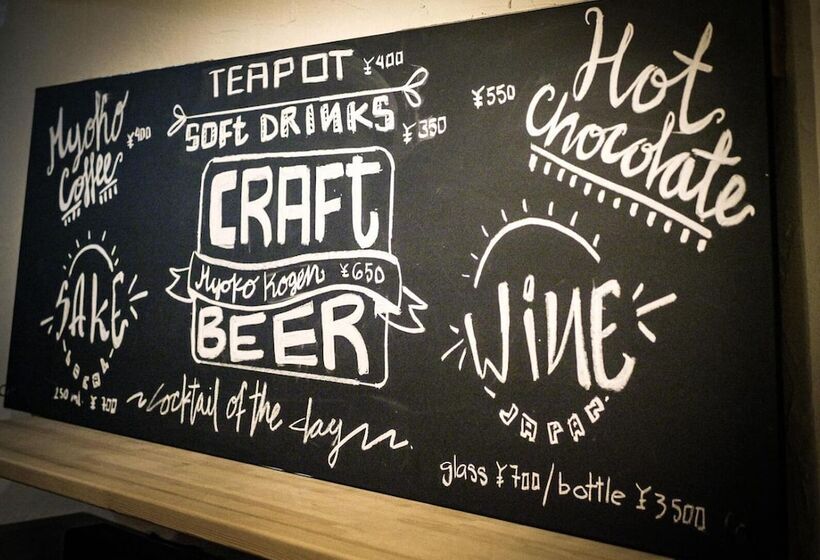 Myoko
Coffee
¥400
SAKE
LOCAL
250 ml. ¥ 700
TEAPOT ¥400
SOFT DRINKS ¥350
CRAFT
Myoko Kogen ¥650
BEER
~Cocktail of the day~
¥550 Hot
Chocolate
WINE
JAPAN
glass ¥700/bottle ¥3500